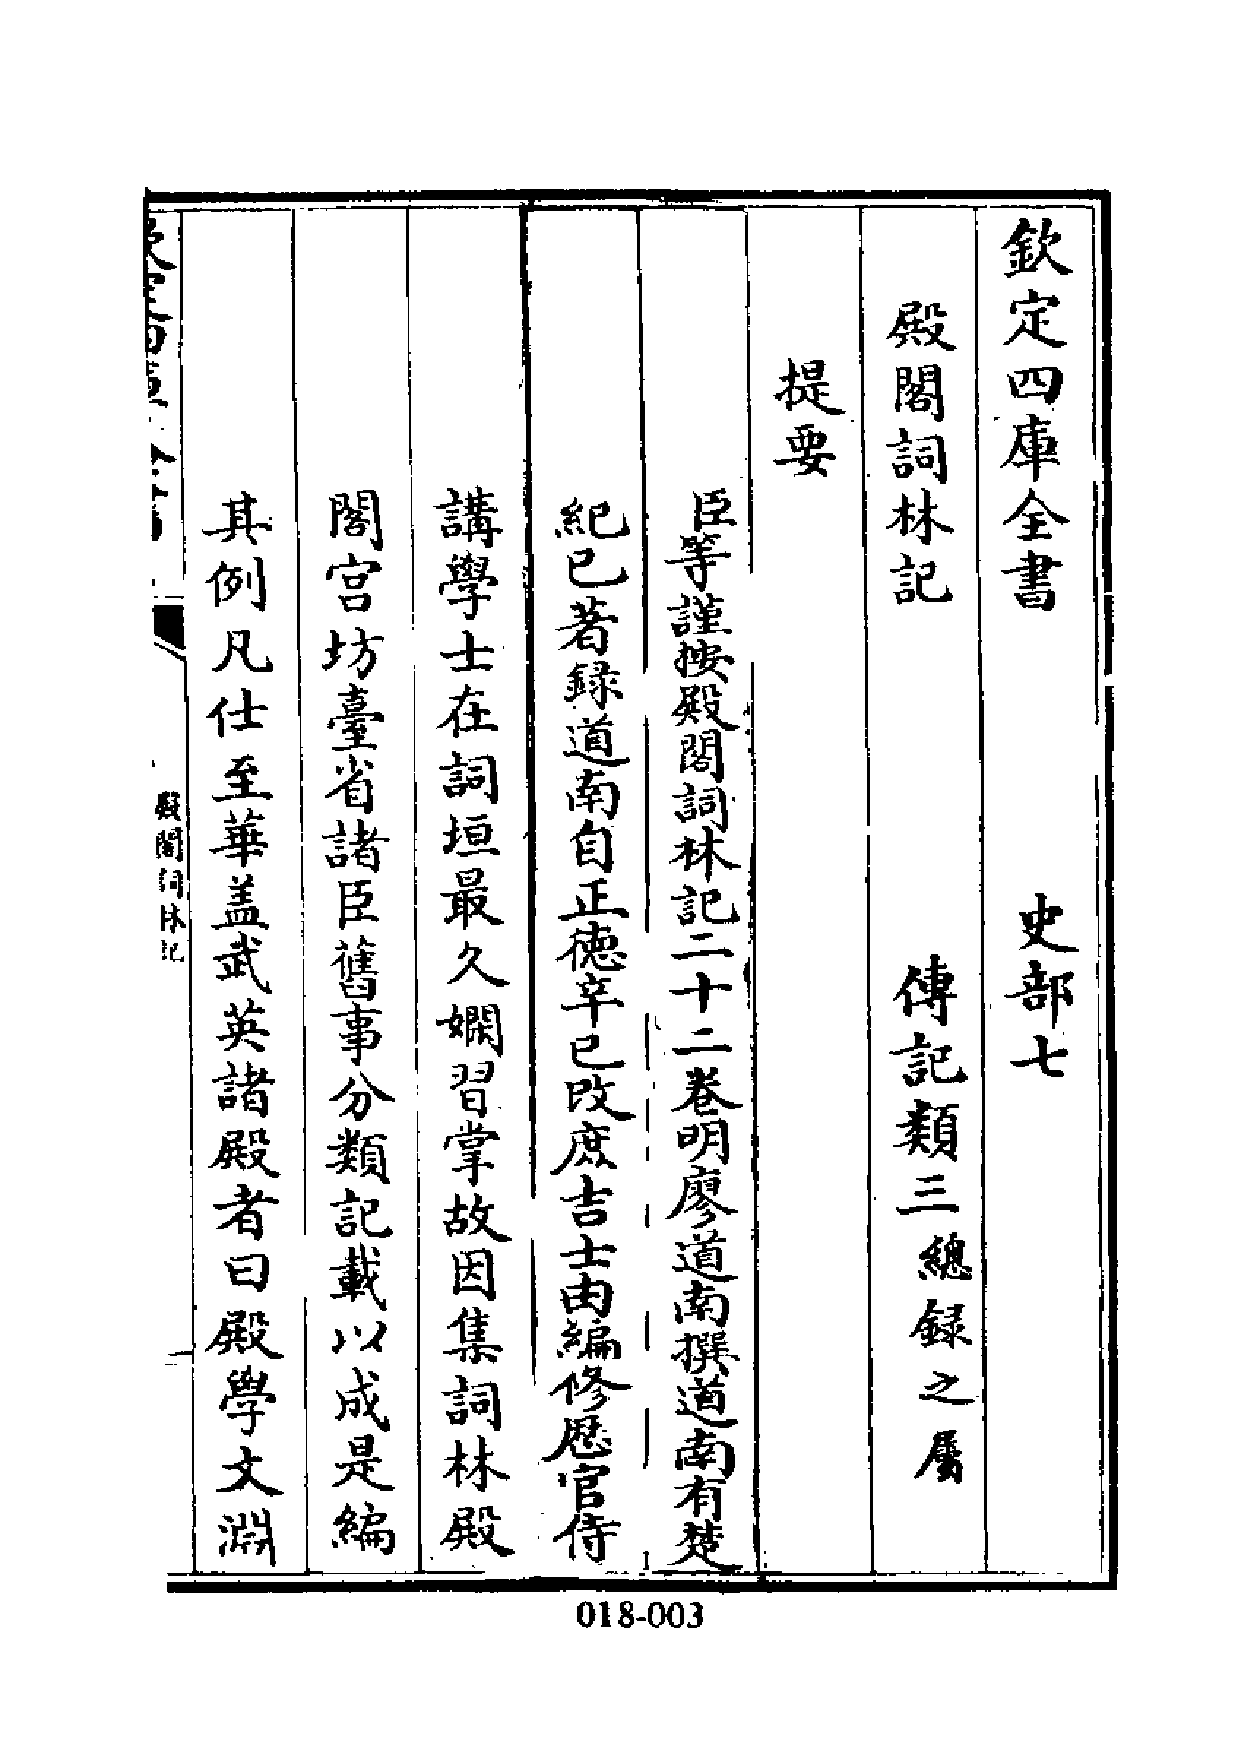 欽定四庫全書　　　　史部七
殿閣詞林記　　　　傳記類三總録之屬
提要
臣等謹按殿閣詞林記二十二卷明廖道南撰道南有楚
紀已著録道南自正徳辛巳改庶吉士由編修歴官侍
講學士在詞垣最久嫻習掌故因集詞林殿
閣宫坊臺省諸臣舊事分類記載以成是編
其例凡仕至華盖武英諸殿者曰殿學文淵
殿閣詞林記
018-003